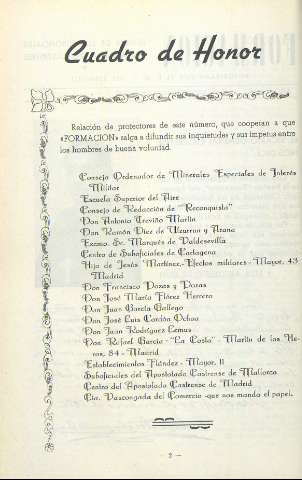 Cuadro de Honor
Relación de protectores de este número, que cooperan a que
«FORMACION» salga a difundir sus inquietudes y sus ímpetus entre
los hombres de buena voluntad.
Consejo Ordenador de Minerales Especiales de Interés
Militar
Escuela Superior del Aire
Consejo de Redacción de "Reconquista"
Don Antonio Treviño Martín
Don Ramón Díez de Ulzurrun y Arana
Excmo. Sr. Marqués de Valdesevilla
Centro de Suboficiales de Cartagena
Hijo de Jesús Martínez.-Efectos militares-Mayor, 43
Madrid
Don Francisco Pozas y Pozas
Don José María Flórez Herrera
Don Juan García Gallego
Don José Luis Carrión Ochoa
Don Juan Rodríguez Lemus
Don Rafael García - "La Costa" - Martín de los He-
ros, 84 - Madrid
Establecimientos Flández - Mayor, 11
Suboficiales del Apostolado Castrense de Mallorca
Centro del Apostolado Castrense de Madrid
Cía. Vascongada del Comercio -que nos manda el papel.
— 2 —